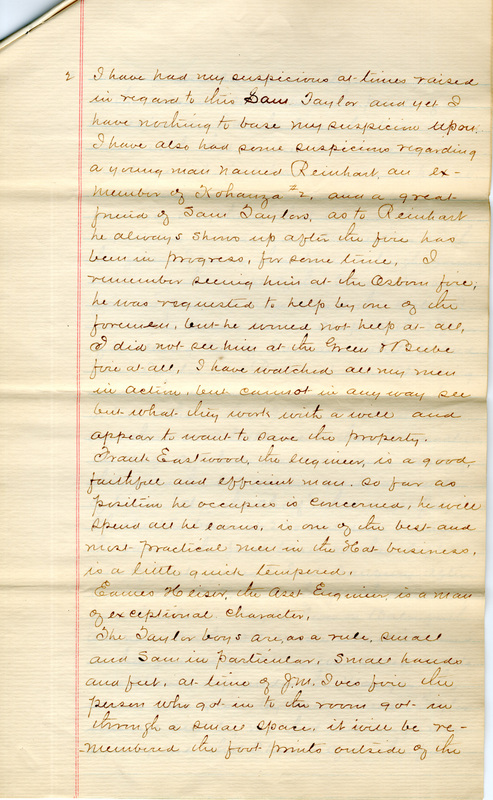 2 I have had my suspicious at times raised
in regard to this Sam Taylor and yet I
have nothing to base my suspicion upon.
I have also had some suspicions regarding
a young man named Reinhart, an ex-
member of Kohanza #2, and a great
friend of Sam Taylors, as to Reinhart
he always shows up after the fire has
been in progress, for some time. I
remember seeing him at the Osborn fire,
he was requested to help by one of the
foremen, but he would not help at all,
I did not see him at the Green & Beebe
fire at all, I have watched all my men
in action, but cannot in any way see
but what they work with a will and
appear to want to save the property.
Frank Eastwood, the Engineer, is a good,
faithful and efficient man. So far as
position he occupies is concerned, he will
spend all he earns, is one of the best and
most practical men in the Hat business,
is a little quick tempered.
Eames Heisor, the Asst Engineer, is a man
of exceptional character.
The Taylor boys are, as a rule, small
and Sam in particular. Small hands
and feet, at time of J.M. Ives fire the
person who got in to the room got in
through a small space, it will be re-
-membered the foot prints outside of the